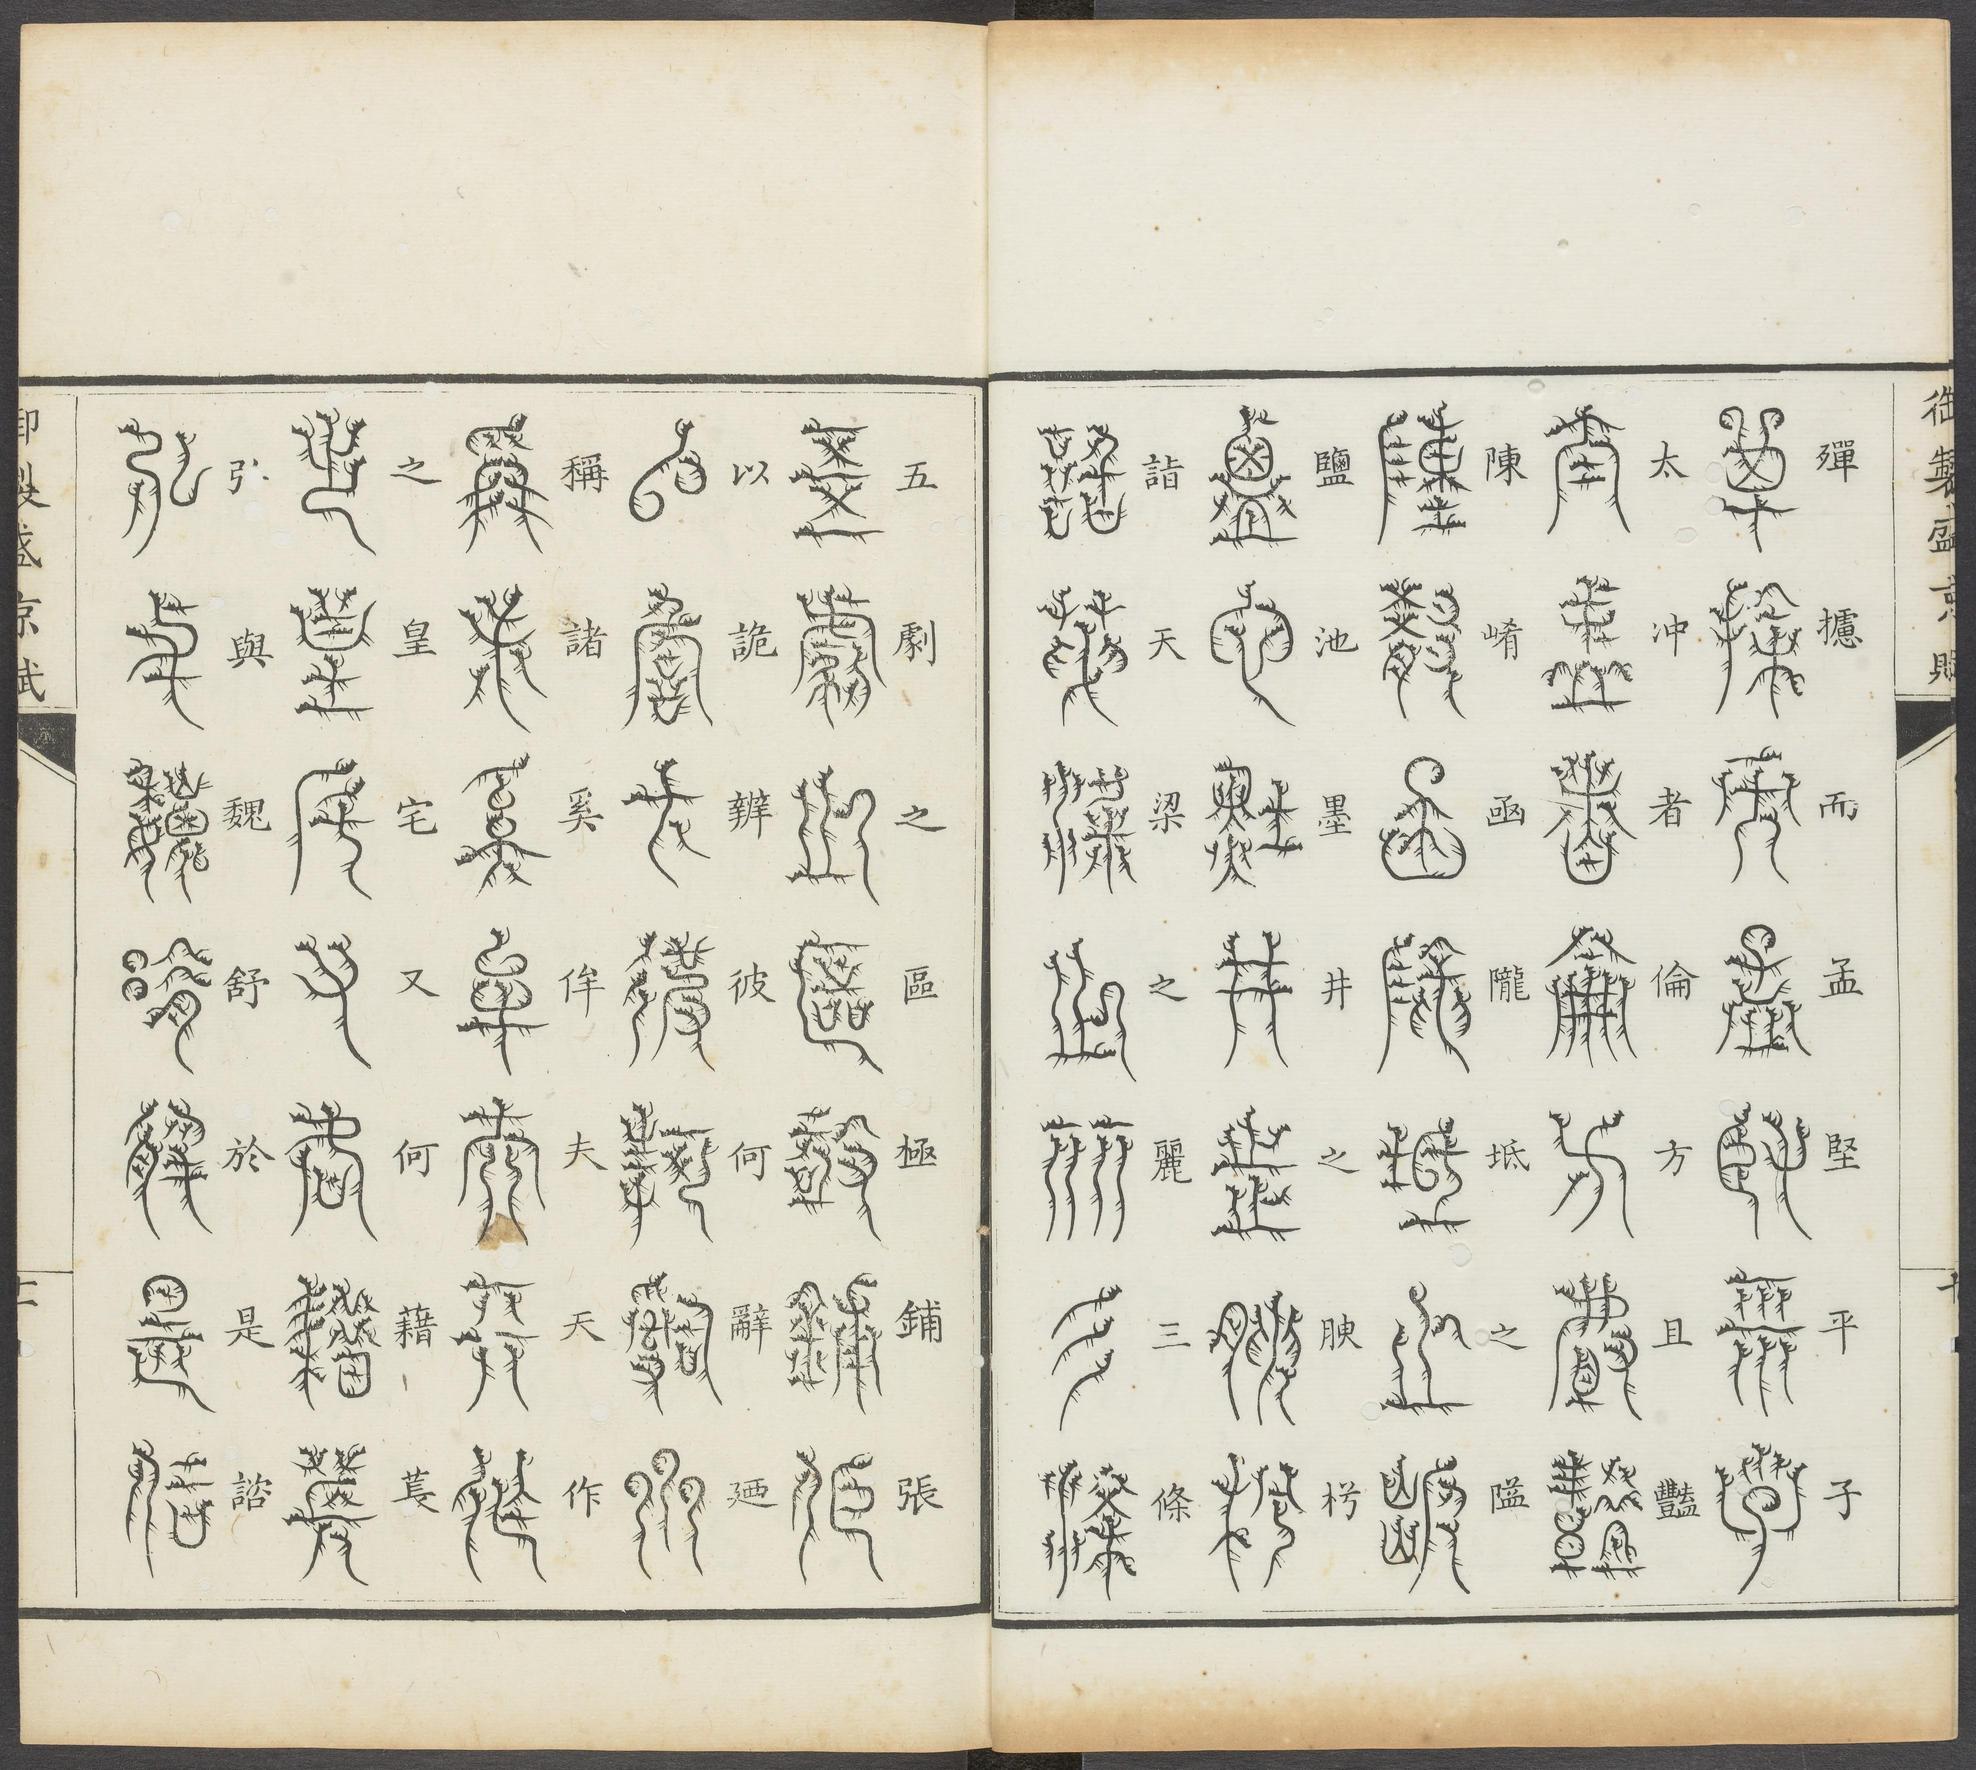 御製盛京賦
殫攄而孟堅平子
太冲者倫方且豔
陳崤函隴坻之隘
鹽池墨井之腴栘
詣天梁之麗三條
五劇之區極鋪張
以詭辨彼何辭廼
稱諸奚侔夫天作
之皇宅又何藉萇
弘與魏舒於是諮
御製盛京賦